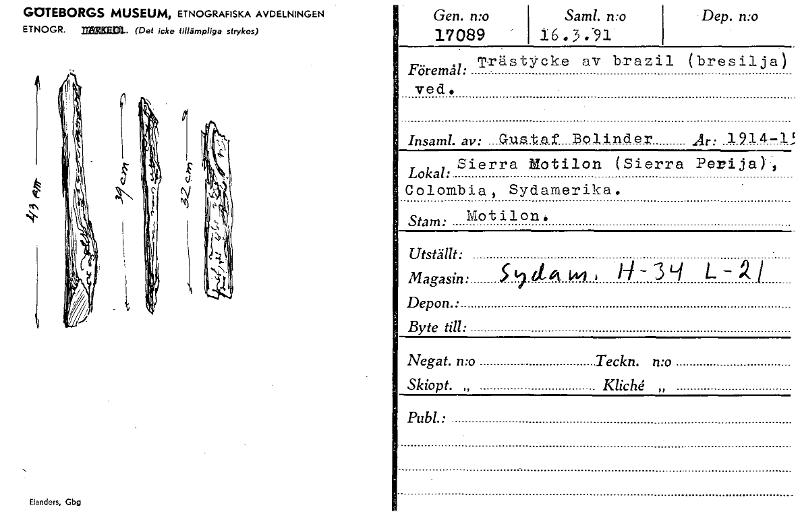 GÖTEBORGS MUSEUM, ETNOGRAFISKA AVDELNINGEN
ETNOGR. (Det icke tillämpliga strykes)
43 cm
39 cm
32 cm
Elanders, Gbg
Gen. n:o Saml. n:o Dep. n:o
17089 16.3.91
Föremål: Trästycke av brazil (bresilja)
ved.
Insaml. av: Gustaf Bolinder År: 1914-15
Lokal: Sierra Motilon (Sierra Perija),
Colombia, Sydamerika.
Stam: Motilon.
Utställt:
Magasin: Sydam. H-34 L-21
Depon.:
Byte till:
Negat. n:o Teckn. n:o
Skiopt. „ Kliché „
Publ.: